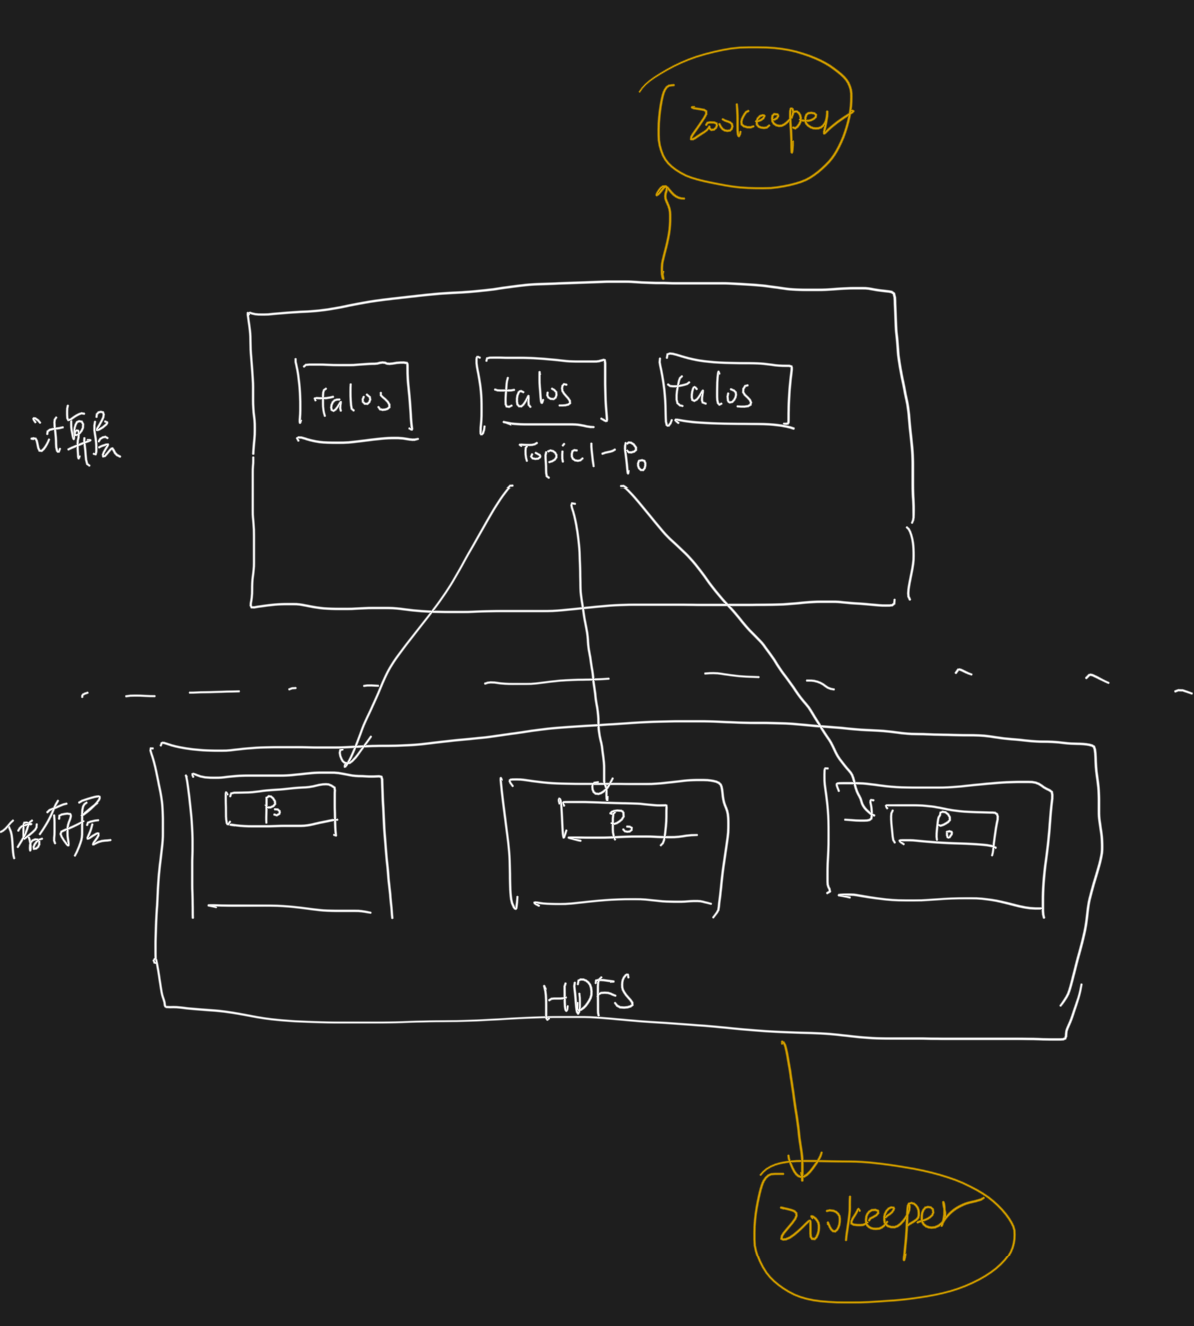 zookeeper
talos
talos
talos
计算层
Topic1-P0
储存层
P0
P0
P0
HDFS
zookeeper